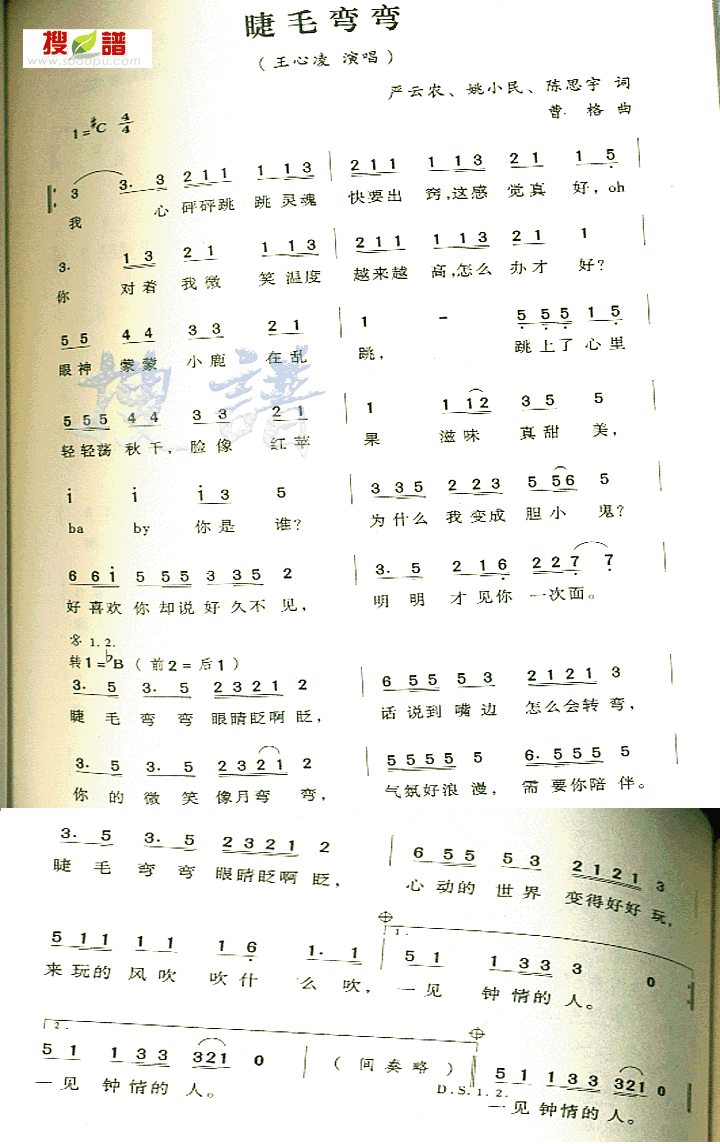 搜譜
www.sooopu.com
睫毛弯弯
(王心凌 演唱)
严云农、姚小民、陈思宇 词
曹 格 曲
1=#C 4/4
3 3. 3 211 1 13 211 113 21 1 5
我 心 砰砰跳 跳灵魂 快要出 窍,这感 觉真 好,oh
3. 13 21 113 211 113 21 1
你 对着 我微 笑温度 越来越 高,怎么 办才 好?
55 44 33 21 1 - 555 15
眼神 蒙蒙 小鹿 在乱 跳, 跳上了 心里
555 44 33 21 1 112 35 5
轻轻荡 秋千,脸像 红苹 果 滋味 真甜 美,
i i i3 5 335 223 556 5
ba by 你是 谁? 为什么 我变成 胆小 鬼?
66i 555 335 2 3. 5 216 227 7
好喜欢 你却说 好久不 见, 明 明 才见你 一次面。
𝄋 1.2.
转1=♭B (前2=后1)
3. 5 3. 5 23211 2 6555 53 21211 3
睫 毛 弯 弯 眼睛眨啊 眨, 话说到 嘴边 怎么会转 弯,
3. 5 3. 5 2321 2 55555 5 6. 555 5
你 的 微 笑 像月弯 弯, 气氛好浪 漫, 需 要你陪 伴。
3. 5 3. 5 23211 2 655 53 21211 3
睫 毛 弯 弯 眼睛眨啊 眨, 心动的 世界 变得好好 玩,
511 11 16 1. 1 1. 51 133 3 0
来玩的 风吹 吹什 么吹, 一见 钟情的 人。
2.
51 133 321 0 (间奏略) 51 133 321 0
一见 钟情的 人。 D.S.1.2. 一见 钟情的 人。